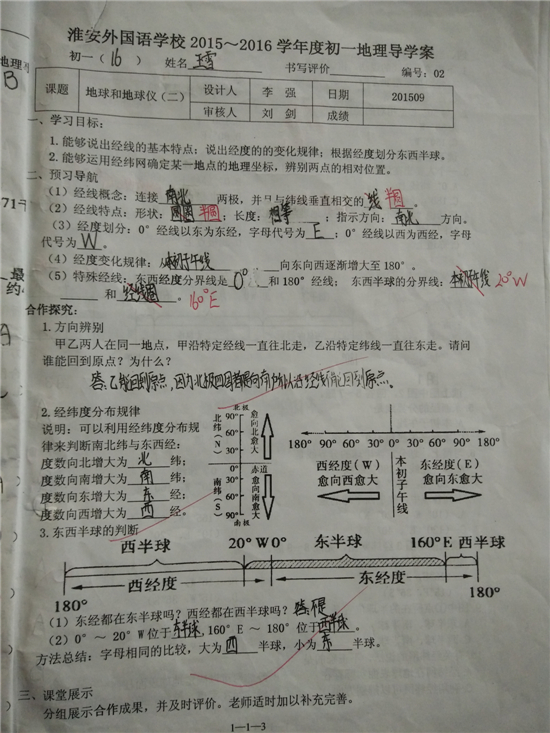 淮安外国语学校 2015～2016 学年度初一地理导学案
初一（ 16 ） 姓名 书写评价 编号：02
课题 地球和地球仪（二） 设计人 李 强 日期 201509
审核人 刘 剑 成绩
一、学习目标：
1. 能够说出经线的基本特点；说出经度的的变化规律；根据经度划分东西半球。
2. 能够运用经纬网确定某一地点的地理坐标，辨别两点的相对位置。
二、预习导航
（1）经线概念：连接 南北 两极，并且与纬线垂直相交的 线 半圆
（2）经线特点：形状： 半圆 ；长度： 相等 ；指示方向： 南北 方向。
（3）经度划分：0°经线以东为东经，字母代号为 E ；0°经线以西为西经，字母
代号为 W 。
（4）经度变化规律：从 本初子午线 向东向西逐渐增大至 180°。
（5）特殊经线：东西经度分界线是 0° 和 180° 经线； 东西半球的分界线： 本初子午线 20°W
和 经线圈 。 160°E
合作探究：
1. 方向辨别
甲乙两人在同一地点，甲沿特定经线一直往北走，乙沿特定纬线一直往东走。请问
谁能回到原点？为什么？
答：乙能回到原点，因为北极四周都是向南
2. 经纬度分布规律
说明：可以利用经纬度分布规
律来判断南北纬与东西经：
度数向北增大为 北 纬；
度数向南增大为 南 纬；
度数向东增大为 东 经；
度数向西增大为 西 经。
北极
90°
60°
30°
0°
30°
60°
90°
南极
北纬（N）
南纬（S）
愈向北愈大
赤道
愈向南愈大
180° 90° 0° 90° 180°
西经度（W） 东经度（E）
愈向西愈大 愈向东愈大
本初子午线
3. 东西半球的判断
西半球 20°W 0° 东半球 160°E 西半球
西经度 东经度
180° 180°
（1）东经都在东半球吗？西经都在西半球吗？ 答：不是
（2）0° ～ 20° W 位于 东半球 ，160° E ～ 180° 位于 西半球 。
方法总结：字母相同的比较，大为 西 半球，小为 东 半球。
三、课堂展示
分组展示合作成果，并及时评价。老师适时加以补充完善。
1—1—3
地理
B
71
最
约